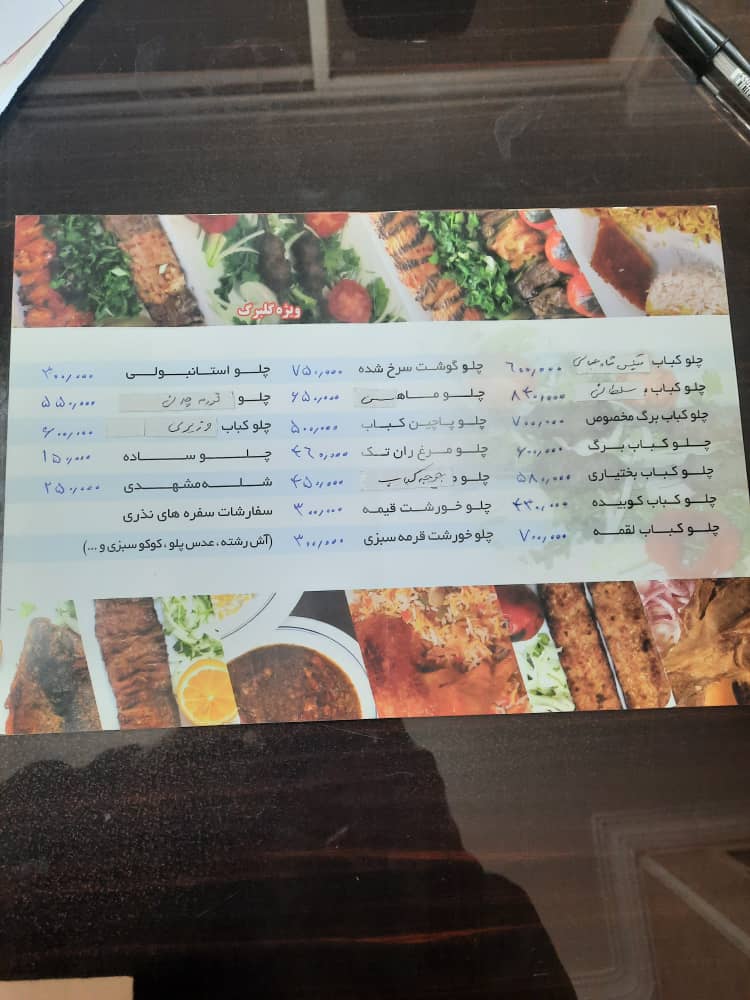 ویژه گلبرگ
چلو کباب شیش شاه عباسی ۶۰۰,۰۰۰
چلو کباب سلطانی ۸۴۰,۰۰۰
چلو کباب برگ مخصوص ۷۰۰,۰۰۰
چلو کباب برگ ۶۰۰,۰۰۰
چلو کباب بختیاری ۵۸۰,۰۰۰
چلو کباب کوبیده ۴۳۰,۰۰۰
چلو کباب لقمه ۷۰۰,۰۰۰
چلو گوشت سرخ شده ۷۵۰,۰۰۰
چلو ماهی ۶۵۰,۰۰۰
چلو پاچین کباب ۵۰۰,۰۰۰
چلو مرغ ران تک ۴۶۰,۰۰۰
چلو جوجه کباب ۴۵۰,۰۰۰
چلو خورشت قیمه ۳۰۰,۰۰۰
چلو خورشت قرمه سبزی ۳۰۰,۰۰۰
چلو استانبولی ۳۰۰,۰۰۰
چلو ۵۵۰,۰۰۰
چلو کباب وزیری ۶۰۰,۰۰۰
چلو ساده ۱۵۰,۰۰۰
شله مشهدی ۲۵۰,۰۰۰
سفارشات سفره های نذری
(آش رشته، عدس پلو، کوکو سبزی و ...)